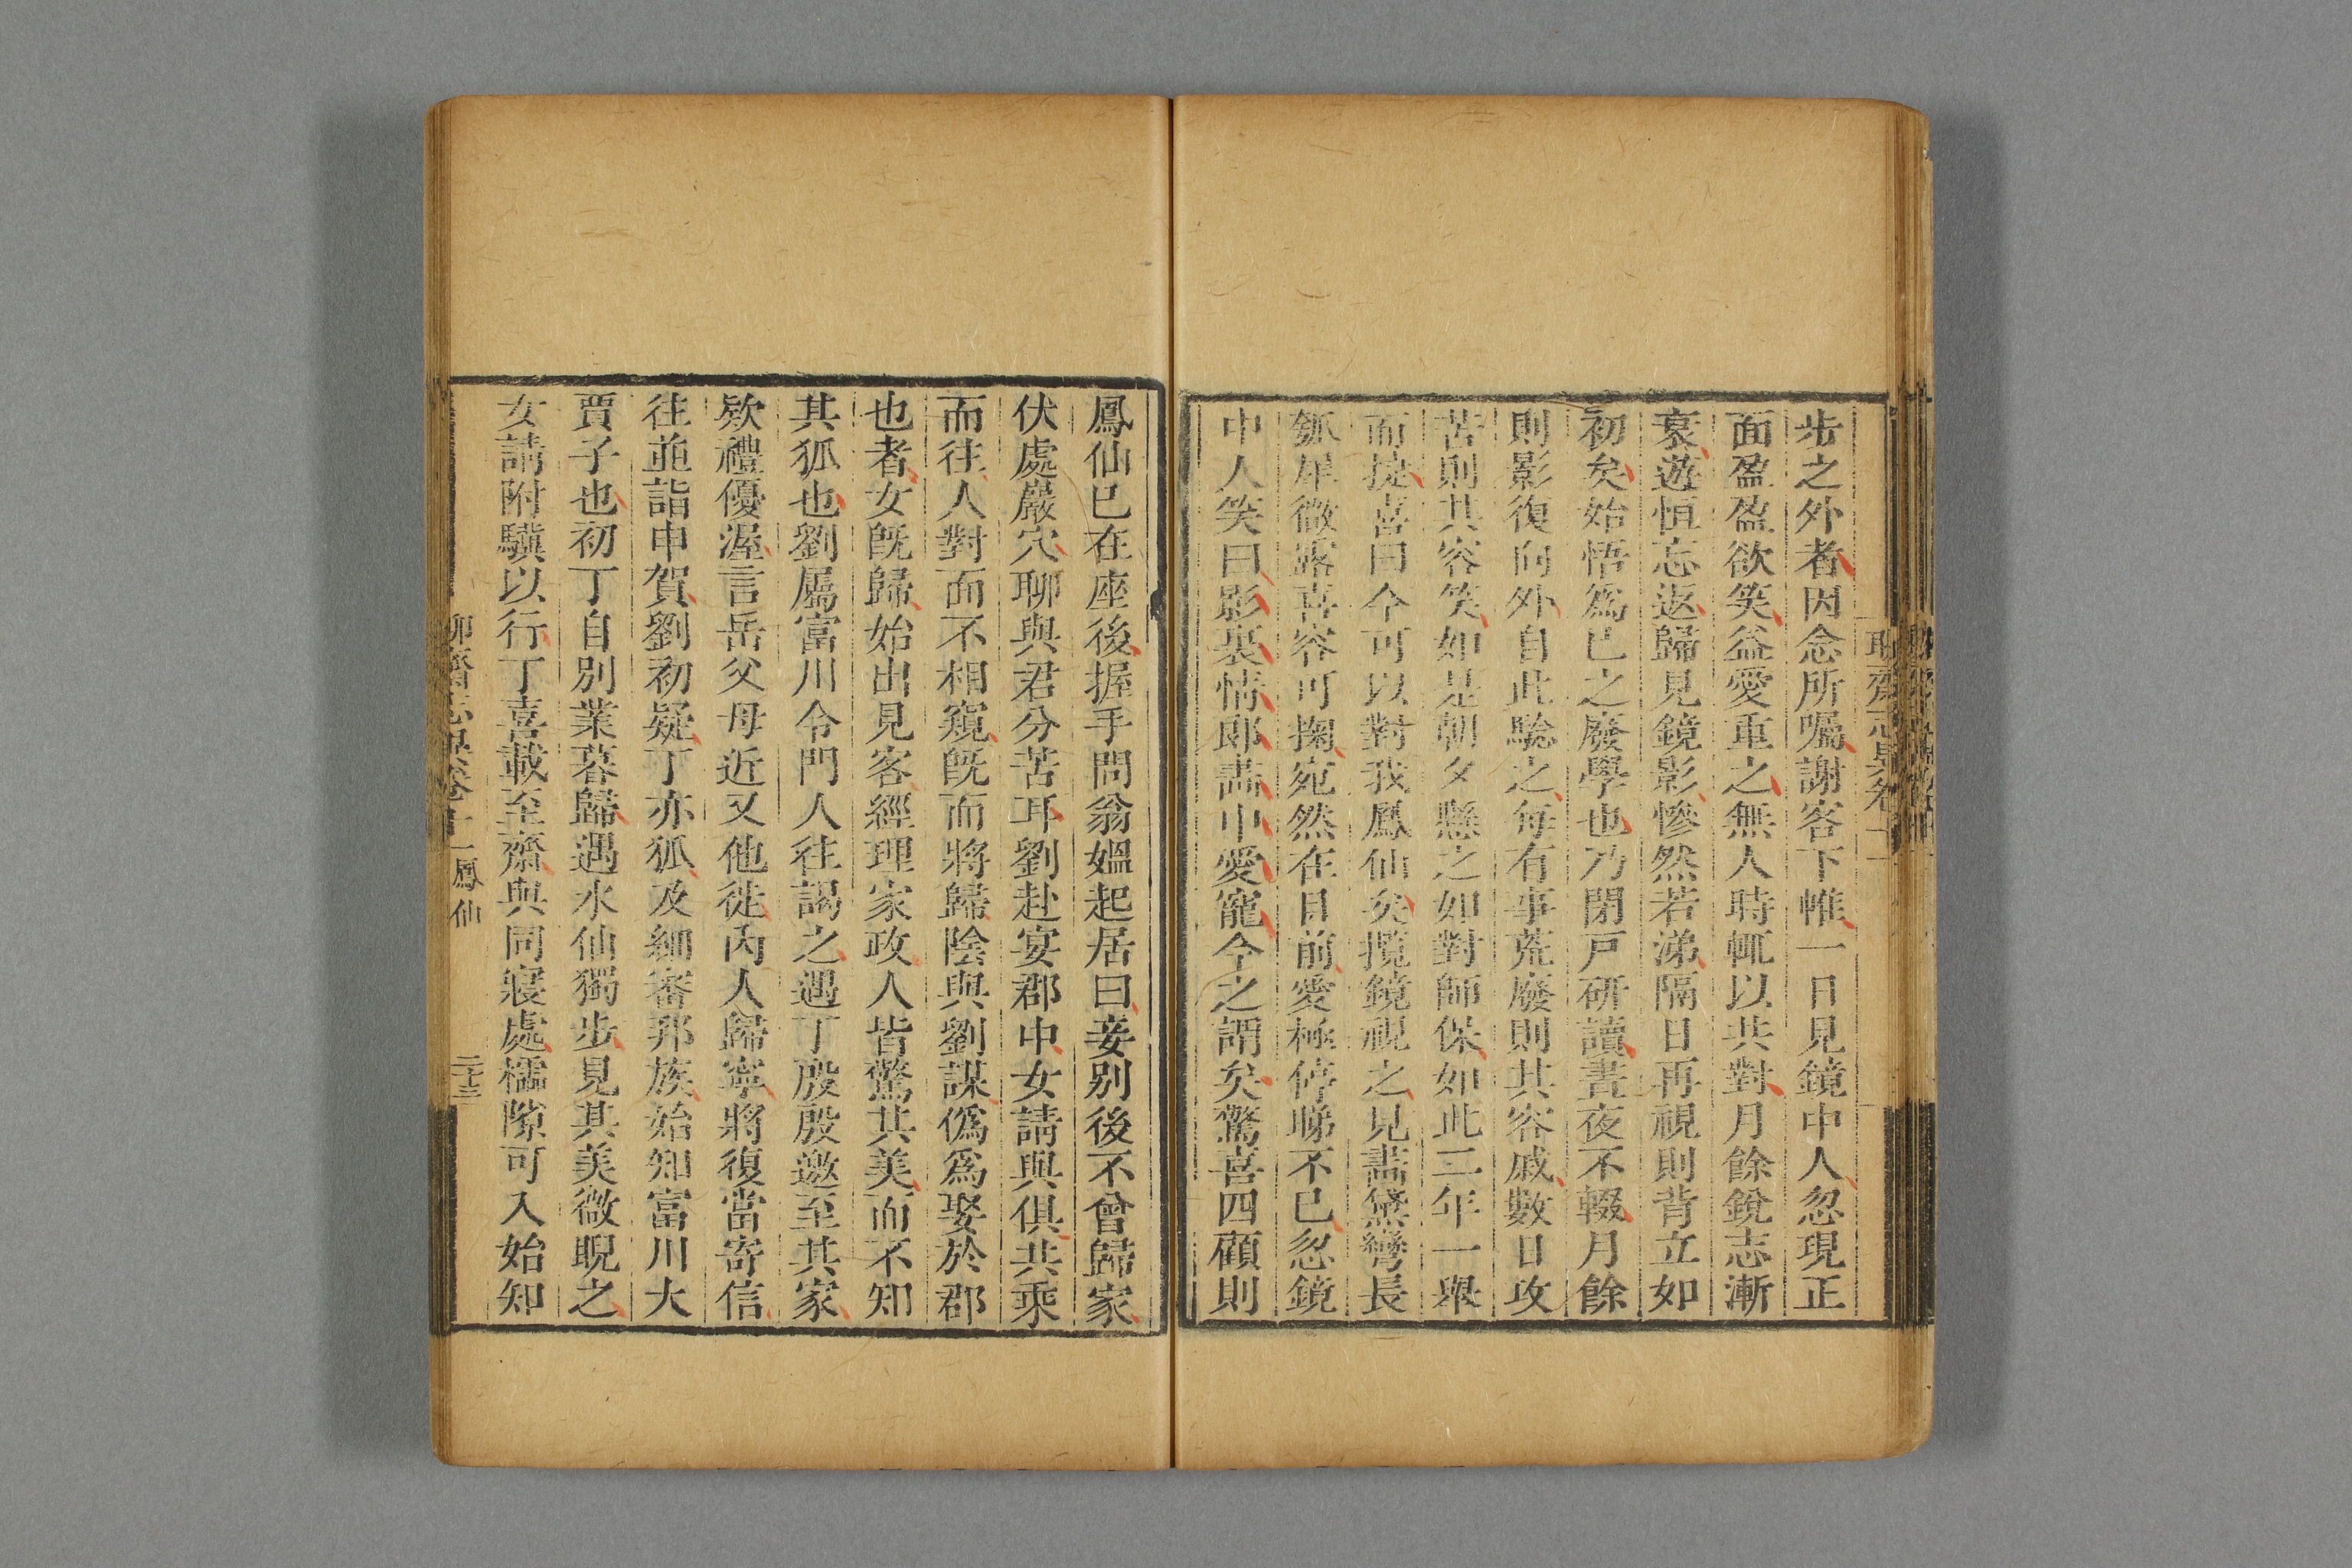 步之外者因念所囑謝客下帷一日見鏡中人忽現正
面盈盈欲笑益愛重之無人時輒以共對月餘銳志漸
衰遊恒忘返歸見鏡影慘然若涕隔日再視則背立如
初矣始悟爲己之廢學也乃閉戸研讀晝夜不輟月餘
則影復向外自此驗之每有事荒廢則其容戚數日攻
苦則其容笑如是朝夕懸之如對師保如此二年一舉
而捷喜曰今可以對我鳳仙矣攬鏡視之見畵黛彎長
瓠犀微露喜容可掬宛然在目前愛極停睇不已忽鏡
中人笑曰影裏情郎畵中愛寵今之謂矣驚喜四顧則
鳳仙已在座後握手問翁媼起居曰妾別後不曾歸家
伏處巖穴聊與君分苦耳劉赴宴郡中女請與俱共乘
而往人對面不相窺旣而將歸陰與劉謀僞爲娶於郡
也者女旣歸始出見客經理家政人皆驚其美而不知
其狐也劉屬富川令門人往謁之遇丁殷殷邀至其家
欵禮優渥言岳父母近又他徙內人歸寧將復當寄信
往並詣申賀劉初疑丁亦狐及細審邦族始知富川大
賈子也初丁自別業暮歸遇水仙獨步見其美微睨之
女請附驥以行丁喜載至齋與同寢處櫺隙可入始知
聊齋志異卷十一 鳳仙 二十三